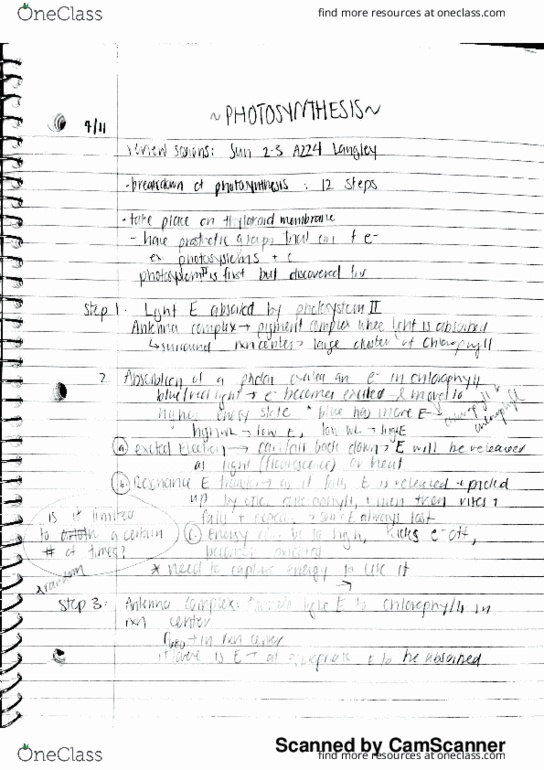 OneClass
find more resources at oneclass.com
~PHOTOSYNTHESIS~
9/11
review sessions: Sun 2-3 A224 Langley
-breakdown of photosynthesis : 12 steps
-take place on thylaroid membrane
- have prosthetic groups that can t e-
ex photosystems + c
photosystem II is first but discovered
Step 1: Light E absorbed by photosystem II
Antenna complex → pigment complex where light is absorbed
↳ surround rxn center → large cluster of chlorophyll
2. Absorption of a photon excites an e- in chlorophyll
blue/red light → e- becomes excited & moved to
higher energy state *blue has more E-
chlorophyll to
chlorophyll
high wL → low E, low wL → high E
(a) excited electron → can fall back down → E will be released
as light (fluorescence) or heat
(b) Resonance E transfer → as it falls, E is released + picked
up by other chlorophyll, which then rises +
falls + repeat, → some E always lost
is it limited
to a certain
# of times?
(c) Energy can be so high, kicks e- off,
becomes oxidized
*random
* need to capture energy to use it
Step 3: Antenna complex: light E to chlorophyll in
rxn center
P680 → in rxn center
E → to be absorbed
Scanned by CamScanner
OneClass
find more resources at oneclass.com